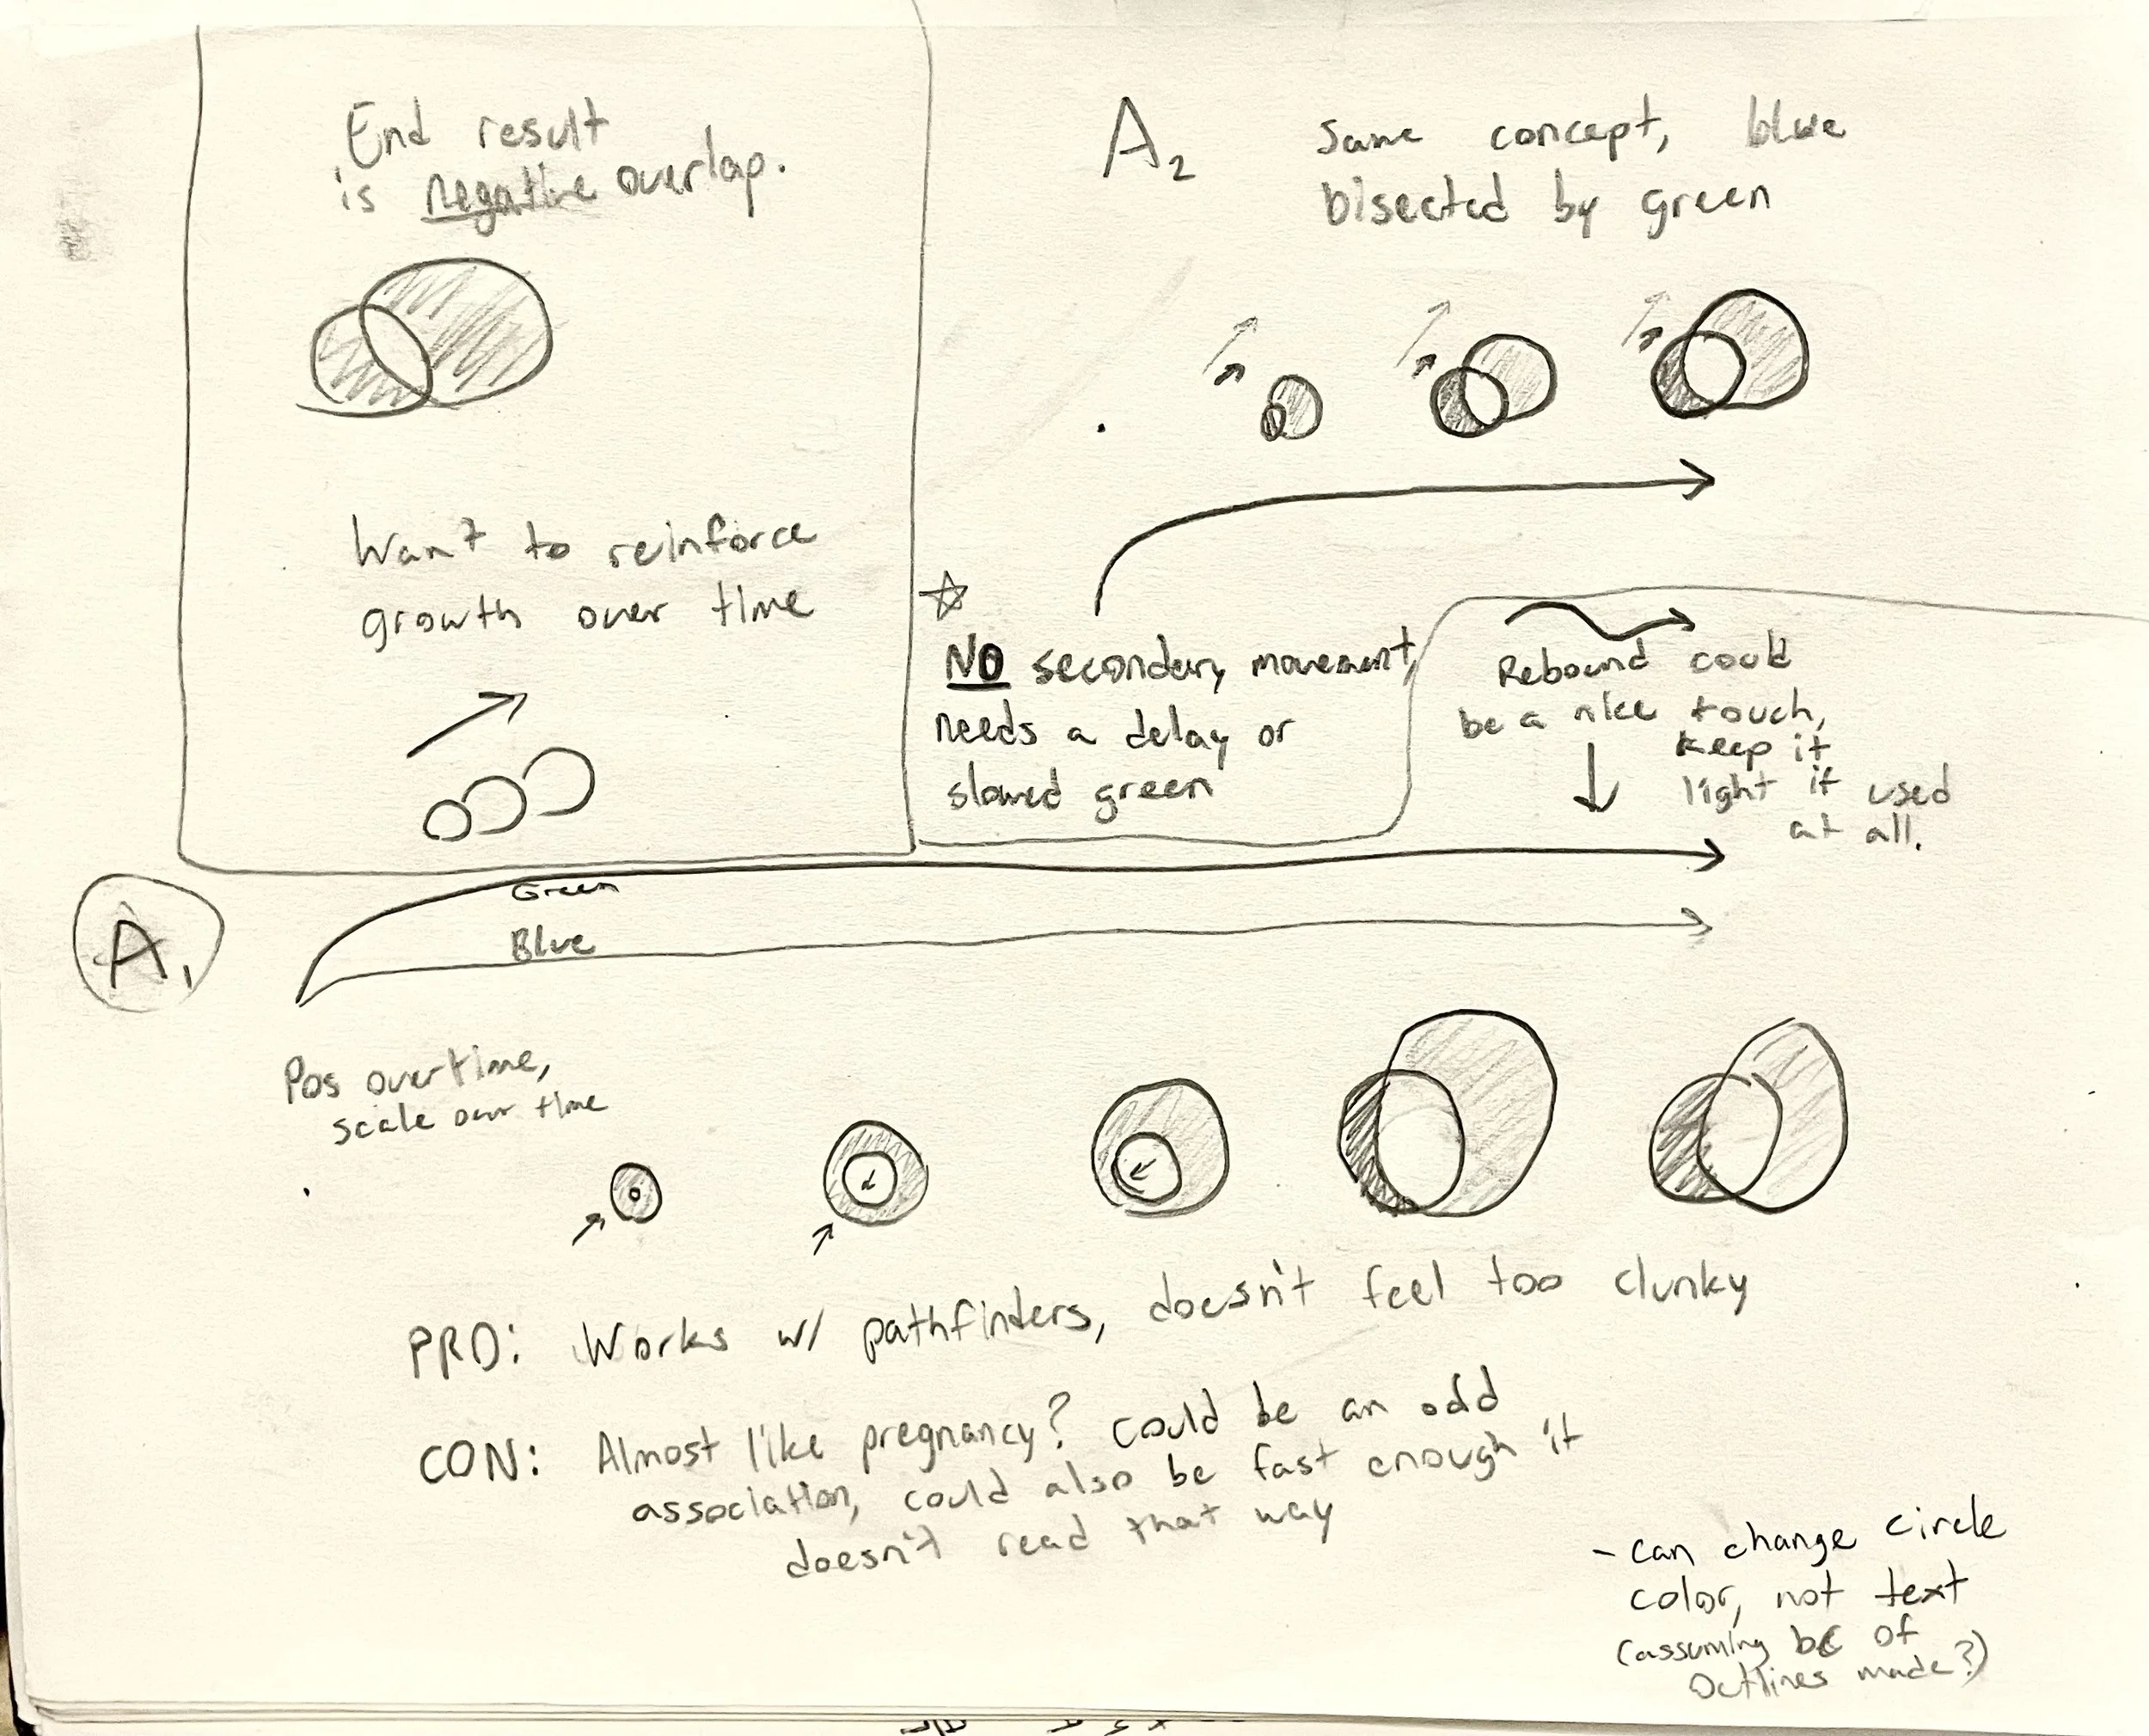 End result
is negative overlap.
Want to reinforce
growth over time
A2
Same concept, blue
bisected by green
NO secondary movement,
needs a delay or
slowed green
Rebound could
be a nice touch,
keep it
light if used
at all.
A1
Green
Blue
Pos over time,
scale over time
PRO: Works w/ pathfinders, doesn't feel too clunky
CON: Almost like pregnancy? Could be an odd
association, could also be fast enough it
doesn't read that way
- can change circle
color, not text
(assuming bc of
outlines made?)